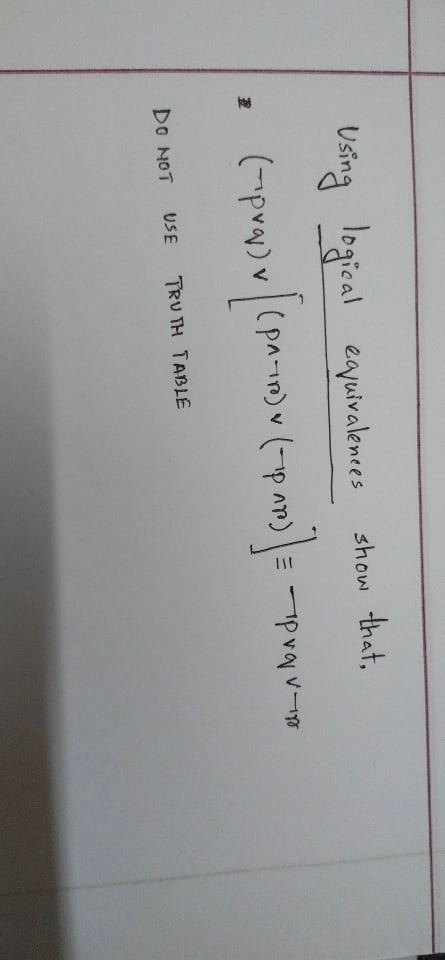 Using logical equivalences show that,
(¬p∨q) ∨ [(p∧¬r) ∨ (¬p∧r)] ≡ ¬p∨q∨¬r
DO NOT USE TRUTH TABLE